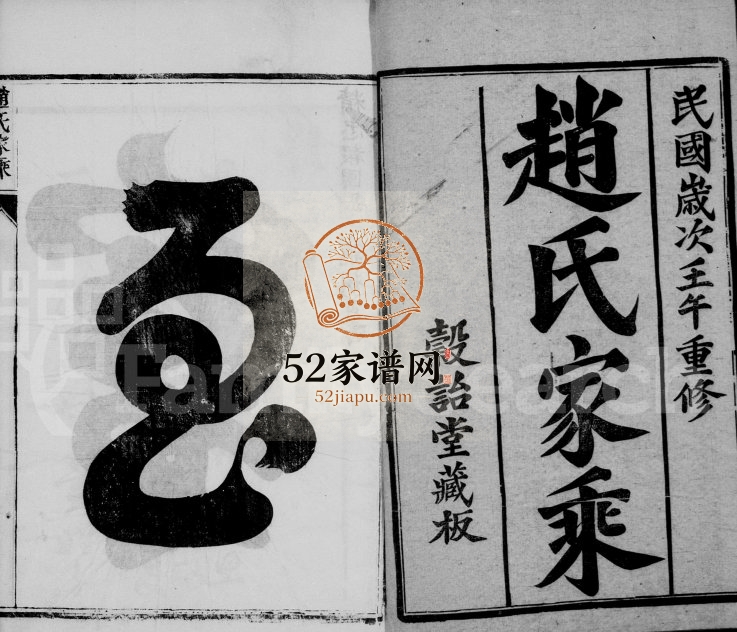 民國歲次壬午重修
趙氏家乘
穀詒堂藏板
趙氏家乘
52家谱网
52jiapu.com